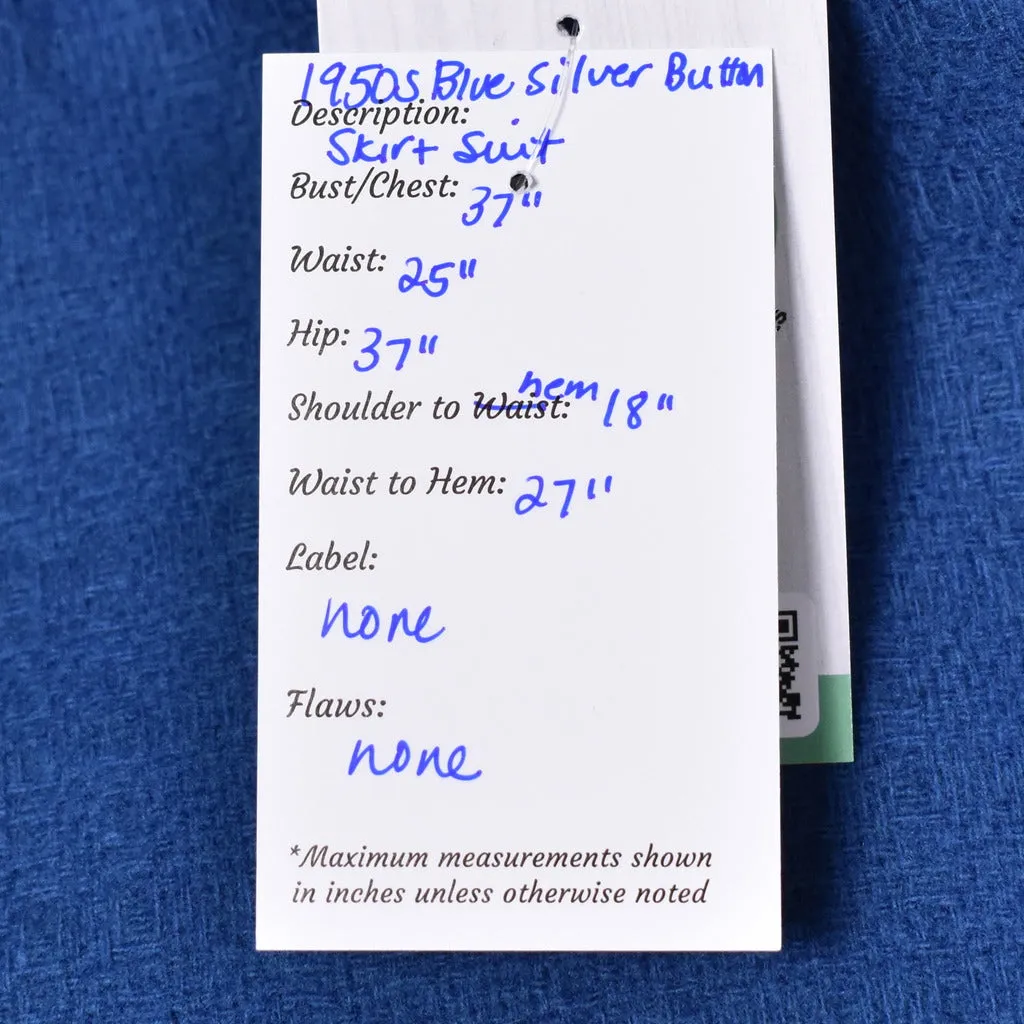 1950s Blue Silver Button
Description:
Skirt Suit
Bust/Chest: 37"
Waist: 25"
Hip: 37"
hem
Shoulder to Waist: 18"
Waist to Hem: 27"
Label:
none
Flaws:
none
*Maximum measurements shown
in inches unless otherwise noted